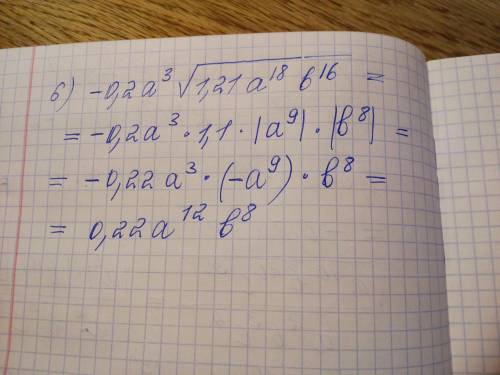 б) -0,2a³√(1,21a¹⁸b¹⁶) =
= -0,2a³·1,1·|a⁹|·|b⁸| =
= -0,22a³·(-a⁹)·b⁸ =
= 0,22a¹²b⁸